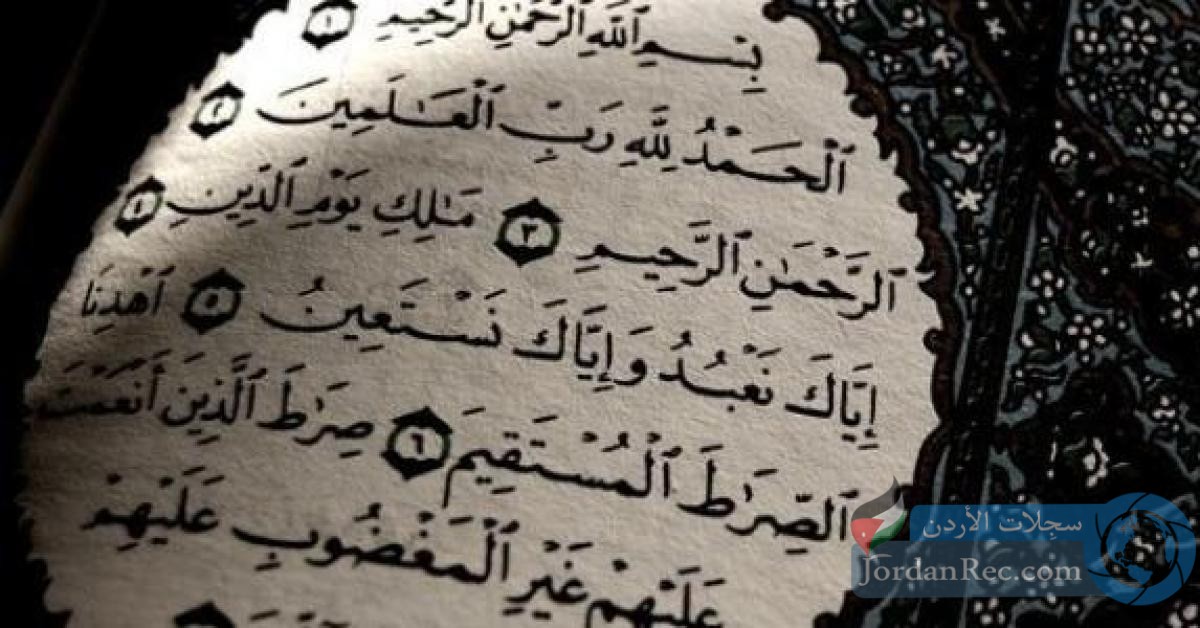 بِسْمِ ٱللَّهِ ٱلرَّحْمَٰنِ ٱلرَّحِيمِ ١
ٱلْحَمْدُ لِلَّهِ رَبِّ ٱلْعَٰلَمِينَ ٢
ٱلرَّحْمَٰنِ ٱلرَّحِيمِ ٣ مَٰلِكِ يَوْمِ ٱلدِّينِ ٤
إِيَّاكَ نَعْبُدُ وَإِيَّاكَ نَسْتَعِينُ ٥ ٱهْدِنَا
ٱلصِّرَٰطَ ٱلْمُسْتَقِيمَ ٦ صِرَٰطَ ٱلَّذِينَ أَنْعَمْتَ
عَلَيْهِمْ غَيْرِ ٱلْمَغْضُوبِ عَلَيْهِمْ
سجلات الأردن
JordanRec.com